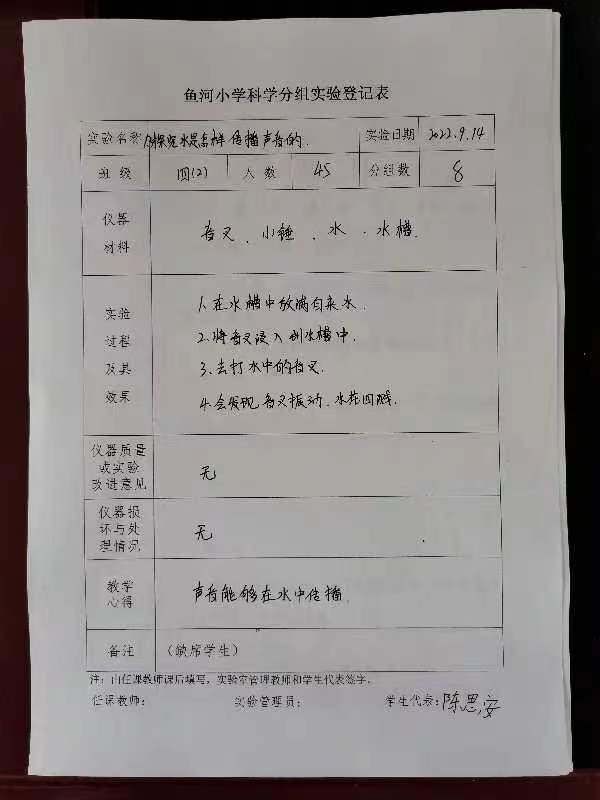 鱼河小学科学分组实验登记表
实验名称 探究水是怎样传播声音的. 实验日期 2022.9.14
班级 四(2) 人数 45 分组数 8
仪器
材料
音叉、小锤、水、水槽.
实验
过程
及其
效果
1.在水槽中放满自来水.
2.将音叉浸入到水槽中.
3.去打水中的音叉.
4.会发现音叉振动、水花四溅.
仪器质量
或实验
改进意见
无
仪器损
坏与处
理情况
无
教学
心得
声音能够在水中传播.
备注 (缺席学生)
注:由任课教师课后填写,实验室管理教师和学生代表签字.
任课教师: 实验管理员: 学生代表:陈思安